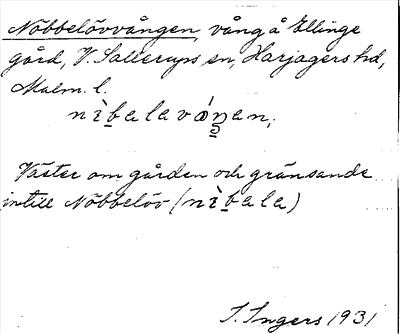 Nöbbelövvången, vång å Ellinge
gård, V. Sallerups sn, Harjagers hd,
Malm. l.
nìbalavóŋan,
Väster om gården och gränsande
intill Nöbbelöv (nìbala)
I. Ingers 1931